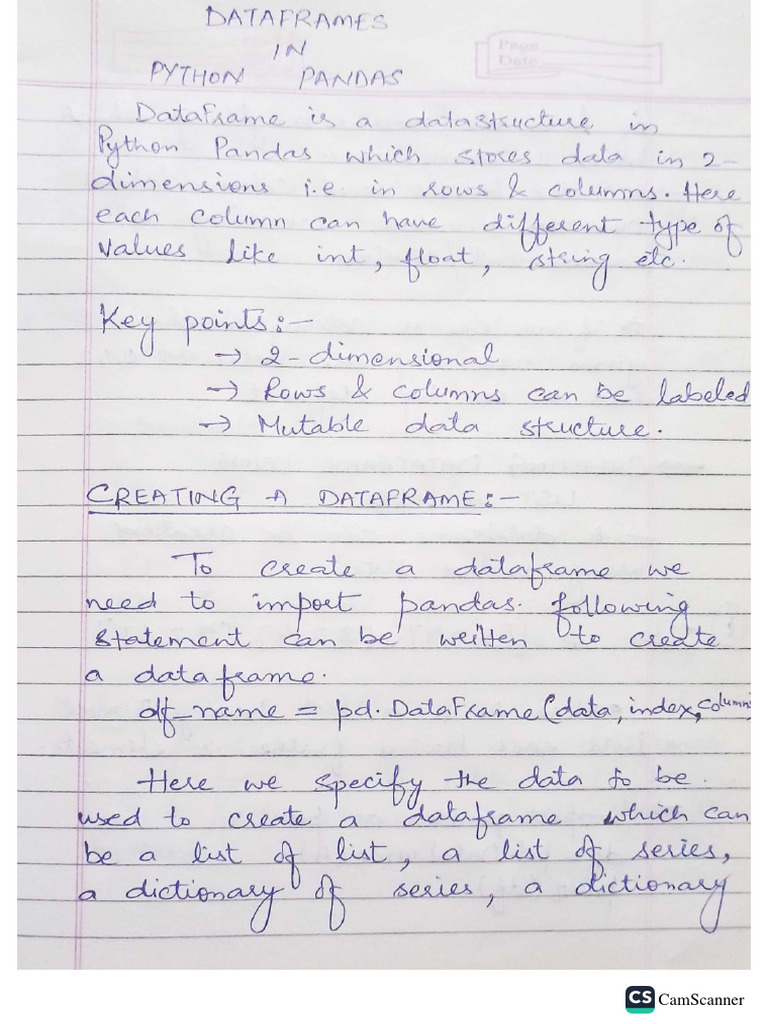 DATAFRAMES
IN
PYTHON PANDAS
Page
Date
DataFrame is a datastructure in
Python Pandas which stores data in 2-
dimensions i.e in rows & columns. Here
each column can have different type of
values like int, float, string etc.
Key points:-
→ 2-dimensional
→ Rows & columns can be labeled
→ Mutable data structure.
CREATING A DATAFRAME:-
To create a dataframe we
need to import pandas. following
statement can be written to create
a dataframe.
df_name = pd.DataFrame(data, index, columns)
Here we specify the data to be
used to create a dataframe which can
be a list of list, a list of series,
a dictionary of series, a dictionary
CS CamScanner